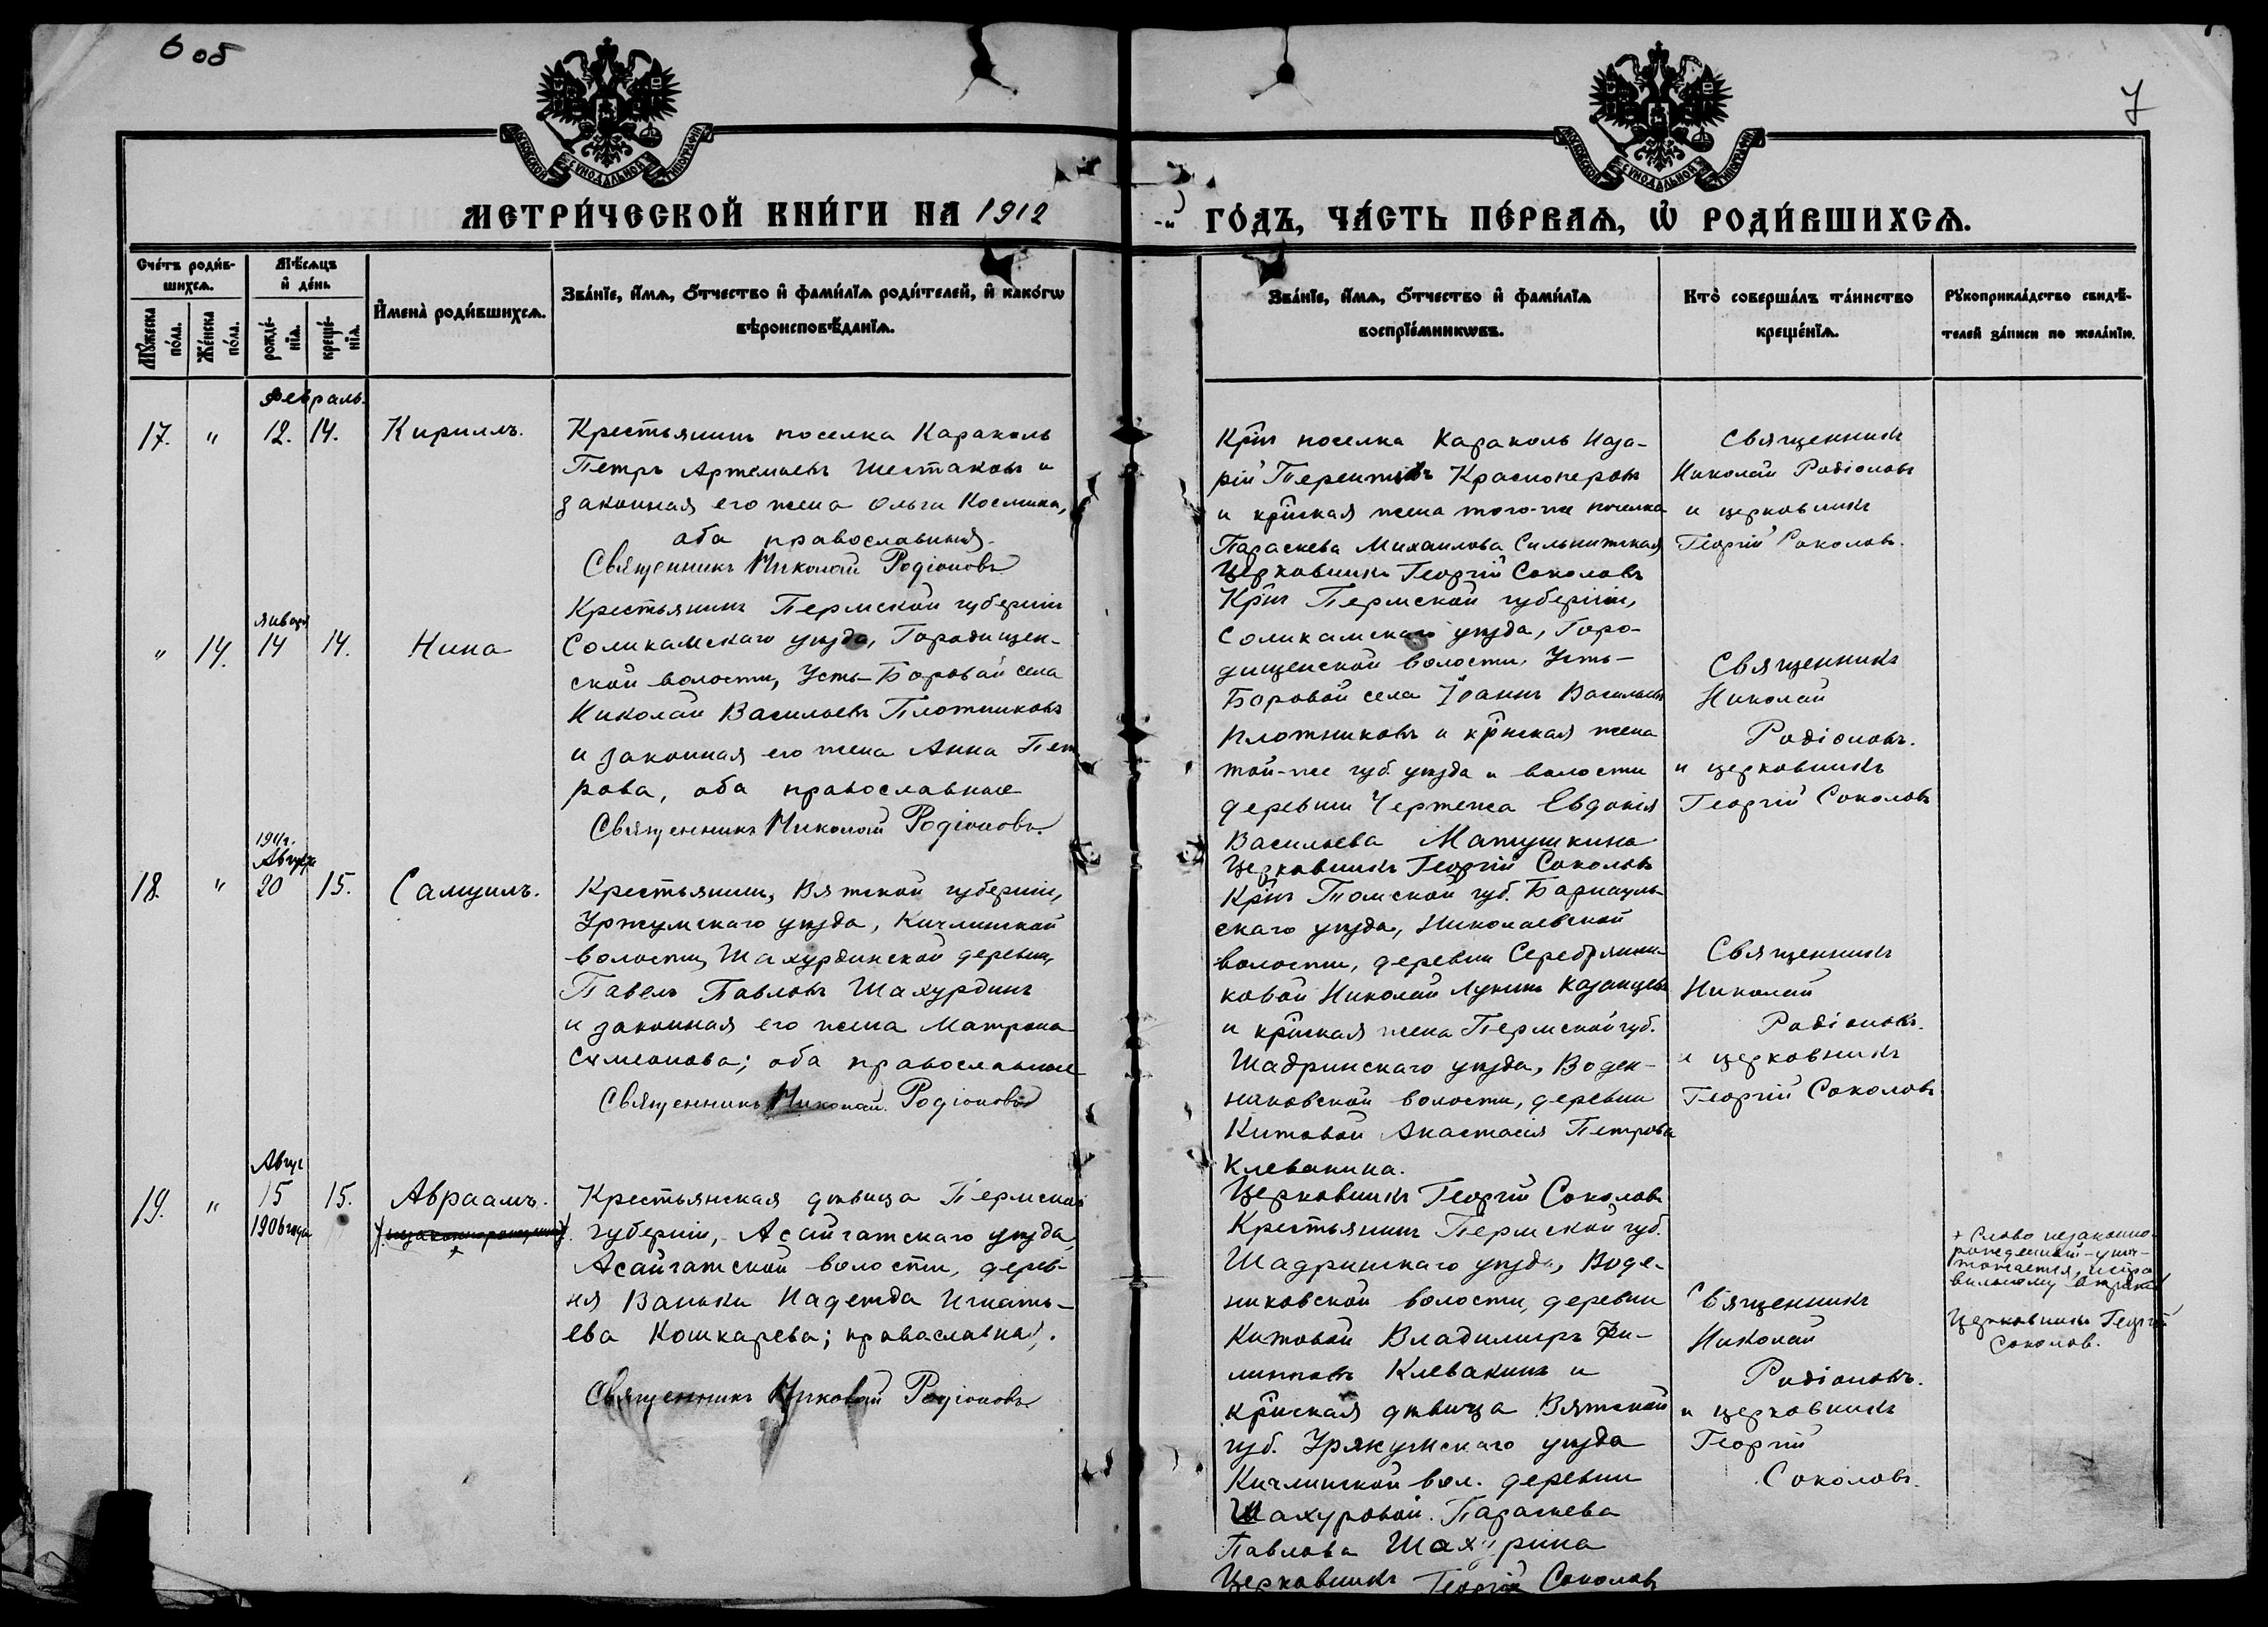 6 об
7
МОСКОВСКОЙ СѴНОДАЛЬНОЙ ТИПОГРАФІИ
МОСКОВСКОЙ СѴНОДАЛЬНОЙ ТИПОГРАФІИ
МЕТРИ́ЧЕСКОЙ КНИ́ГИ НА 1912
-й ГО́ДЪ, ЧА́СТЬ ПЕ́РВАѦ, Ѽ РОДИ́ВШИХСѦ.
Сче́тъ роди́в-
шихсѧ.
Мѣ́сѧцъ
и҆ де́нь
Мꙋ́жеска по́ла.
Же́нска по́ла.
рожде́-
нїѧ.
креще́-
нїѧ.
И҆мена̀ роди́вшихсѧ.
Зва́нїе, и҆́мѧ, ѻ҆́тчество и҆ фами́лїѧ роди́телей, и҆ како́гѡ
вѣроисповѣ́данїѧ.
Зва́нїе, и҆́мѧ, ѻ҆́тчество и҆ фами́лїѧ
воспрїе́мникѡвъ.
Кто̀ соверша́лъ та́инство
креще́нїѧ.
Рꙋкоприкла́дство свидѣ́-
телей за́писи по жела́нїю.
Февраль.
17. " 12. 14. Кириллъ.
Крестьянинъ поселка Караколь
Петръ Артемьевъ Шестаковъ и
законная его жена Ольга Космина,
оба православныя.
Священникъ Николай Родіоновъ
Кр̃нъ поселка Караколь Наза-
рій Терентьевъ Красноперовъ
и кр̃нская жена того-же поселка
Параскева Михаилова Сильнитская
Церковникъ Георгій Соколовъ
Священникъ
Николай Родіоновъ
и церковникъ
Георгій Соколовъ.
января
" 14. 14 14. Нина
Крестьянинъ Пермской губерніи
Соликамскаго уѣзда, Городищен-
ской волости, Усть-Боровой села
Николай Васильевъ Плотниковъ
и законная его жена Анна Пет
рова, оба православные
Священникъ Николай Родіоновъ.
Кр̃нъ Пермской губерніи,
Соликамскаго уѣзда, Горо-
дищенской волости, Усть-
Боровой села Іоаннъ Васильевъ
Плотниковъ и кр̃нская жена
той-же губ. уѣзда и волости
деревни Чертежа Евдокія
Васильева Матушкина
Церковникъ Георгій Соколовъ
Священникъ
Николай
Родіоновъ.
и церковникъ
Георгій Соколовъ
1911 г.
Августа
18. " 20 15. Самуилъ.
Крестьянинъ, Вятской губерніи,
Уржумскаго уѣзда, Кичминской
волости, Шахурдинской деревни,
Павелъ Павловъ Шахурдинъ
и законная его жена Матрона
Симеонова; оба православные
Священникъ Николай Родіоновъ
Кр̃нъ Томской губ. Барнауль-
скаго уѣзда, Николаевской
волости, деревни Серебрянни-
ковой Николай Лукинъ Казанцевъ
и кр̃нская жена Пермской губ.
Шадринскаго уѣзда, Воден-
никовской волости, деревни
Китовой Анастасія Петрова
Клевакина.
Церковникъ Георгій Соколовъ
Священникъ
Николай
Родіоновъ.
и церковникъ
Георгій Соколовъ
Авгус
19. " 15 15. Авраамъ.
1906 года
(незаконнорожденный)
+
Крестьянская дѣвица Пермской
губерніи, Асайгатскаго уѣзда,
Асайгатской волости, дерев-
ня Ваньки Надежда Игнать-
ева Кошкарева; православная.
Священникъ Николай Родіоновъ
Крестьянинъ Пермской губ.
Шадринскаго уѣзда, Воде-
никовской волости, деревни
Китовой Владимиръ Фи-
липповъ Клевакинъ и
кр̃нская дѣвица Вятской
губ. Уржумскаго уѣзда
Кичминской вол. деревни
Шахуровой Параскева
Павлова Шахурина
Церковникъ Георгій Соколовъ
Священникъ
Николай
Родіоновъ.
и церковникъ
Георгій
Соколовъ.
+ Слово незаконно-
рожденный - унич-
тожается,
Церковникъ Георгій
Соколов.